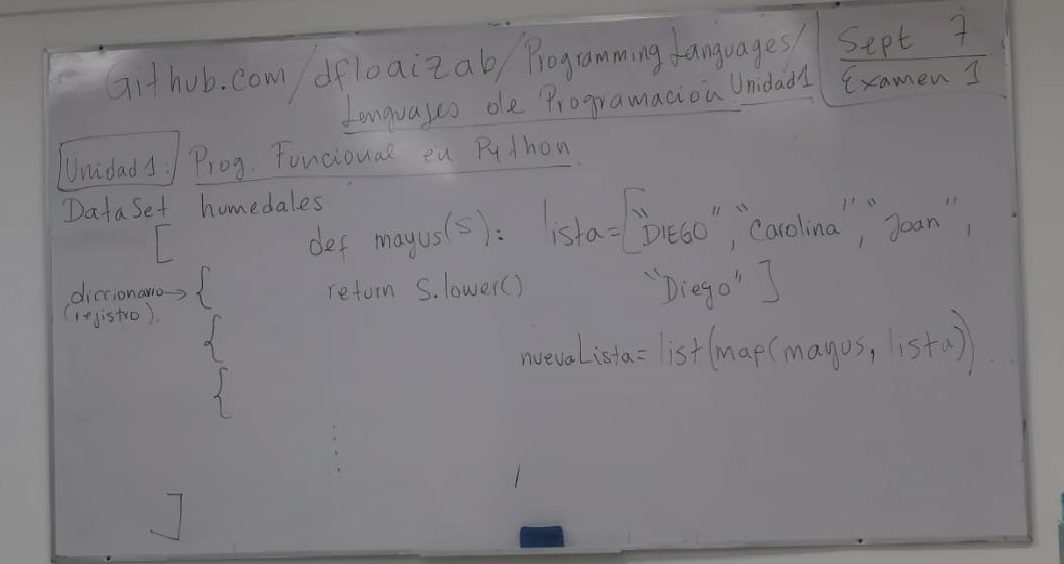 Github.com/dfloaizab/ProgrammingLanguages/
Lenguajes de Programación Unidad1
Sept 7
Examen 1
Unidad1: Prog. Funcional en Python
DataSet humedales
[
diccionario→ {
(registro).
{
{
⋮
]
def mayus(s):
return S.lower()
lista=["DIEGO", "Carolina", "Joan",
"Diego"]
nuevaLista= list(map(mayus, lista))